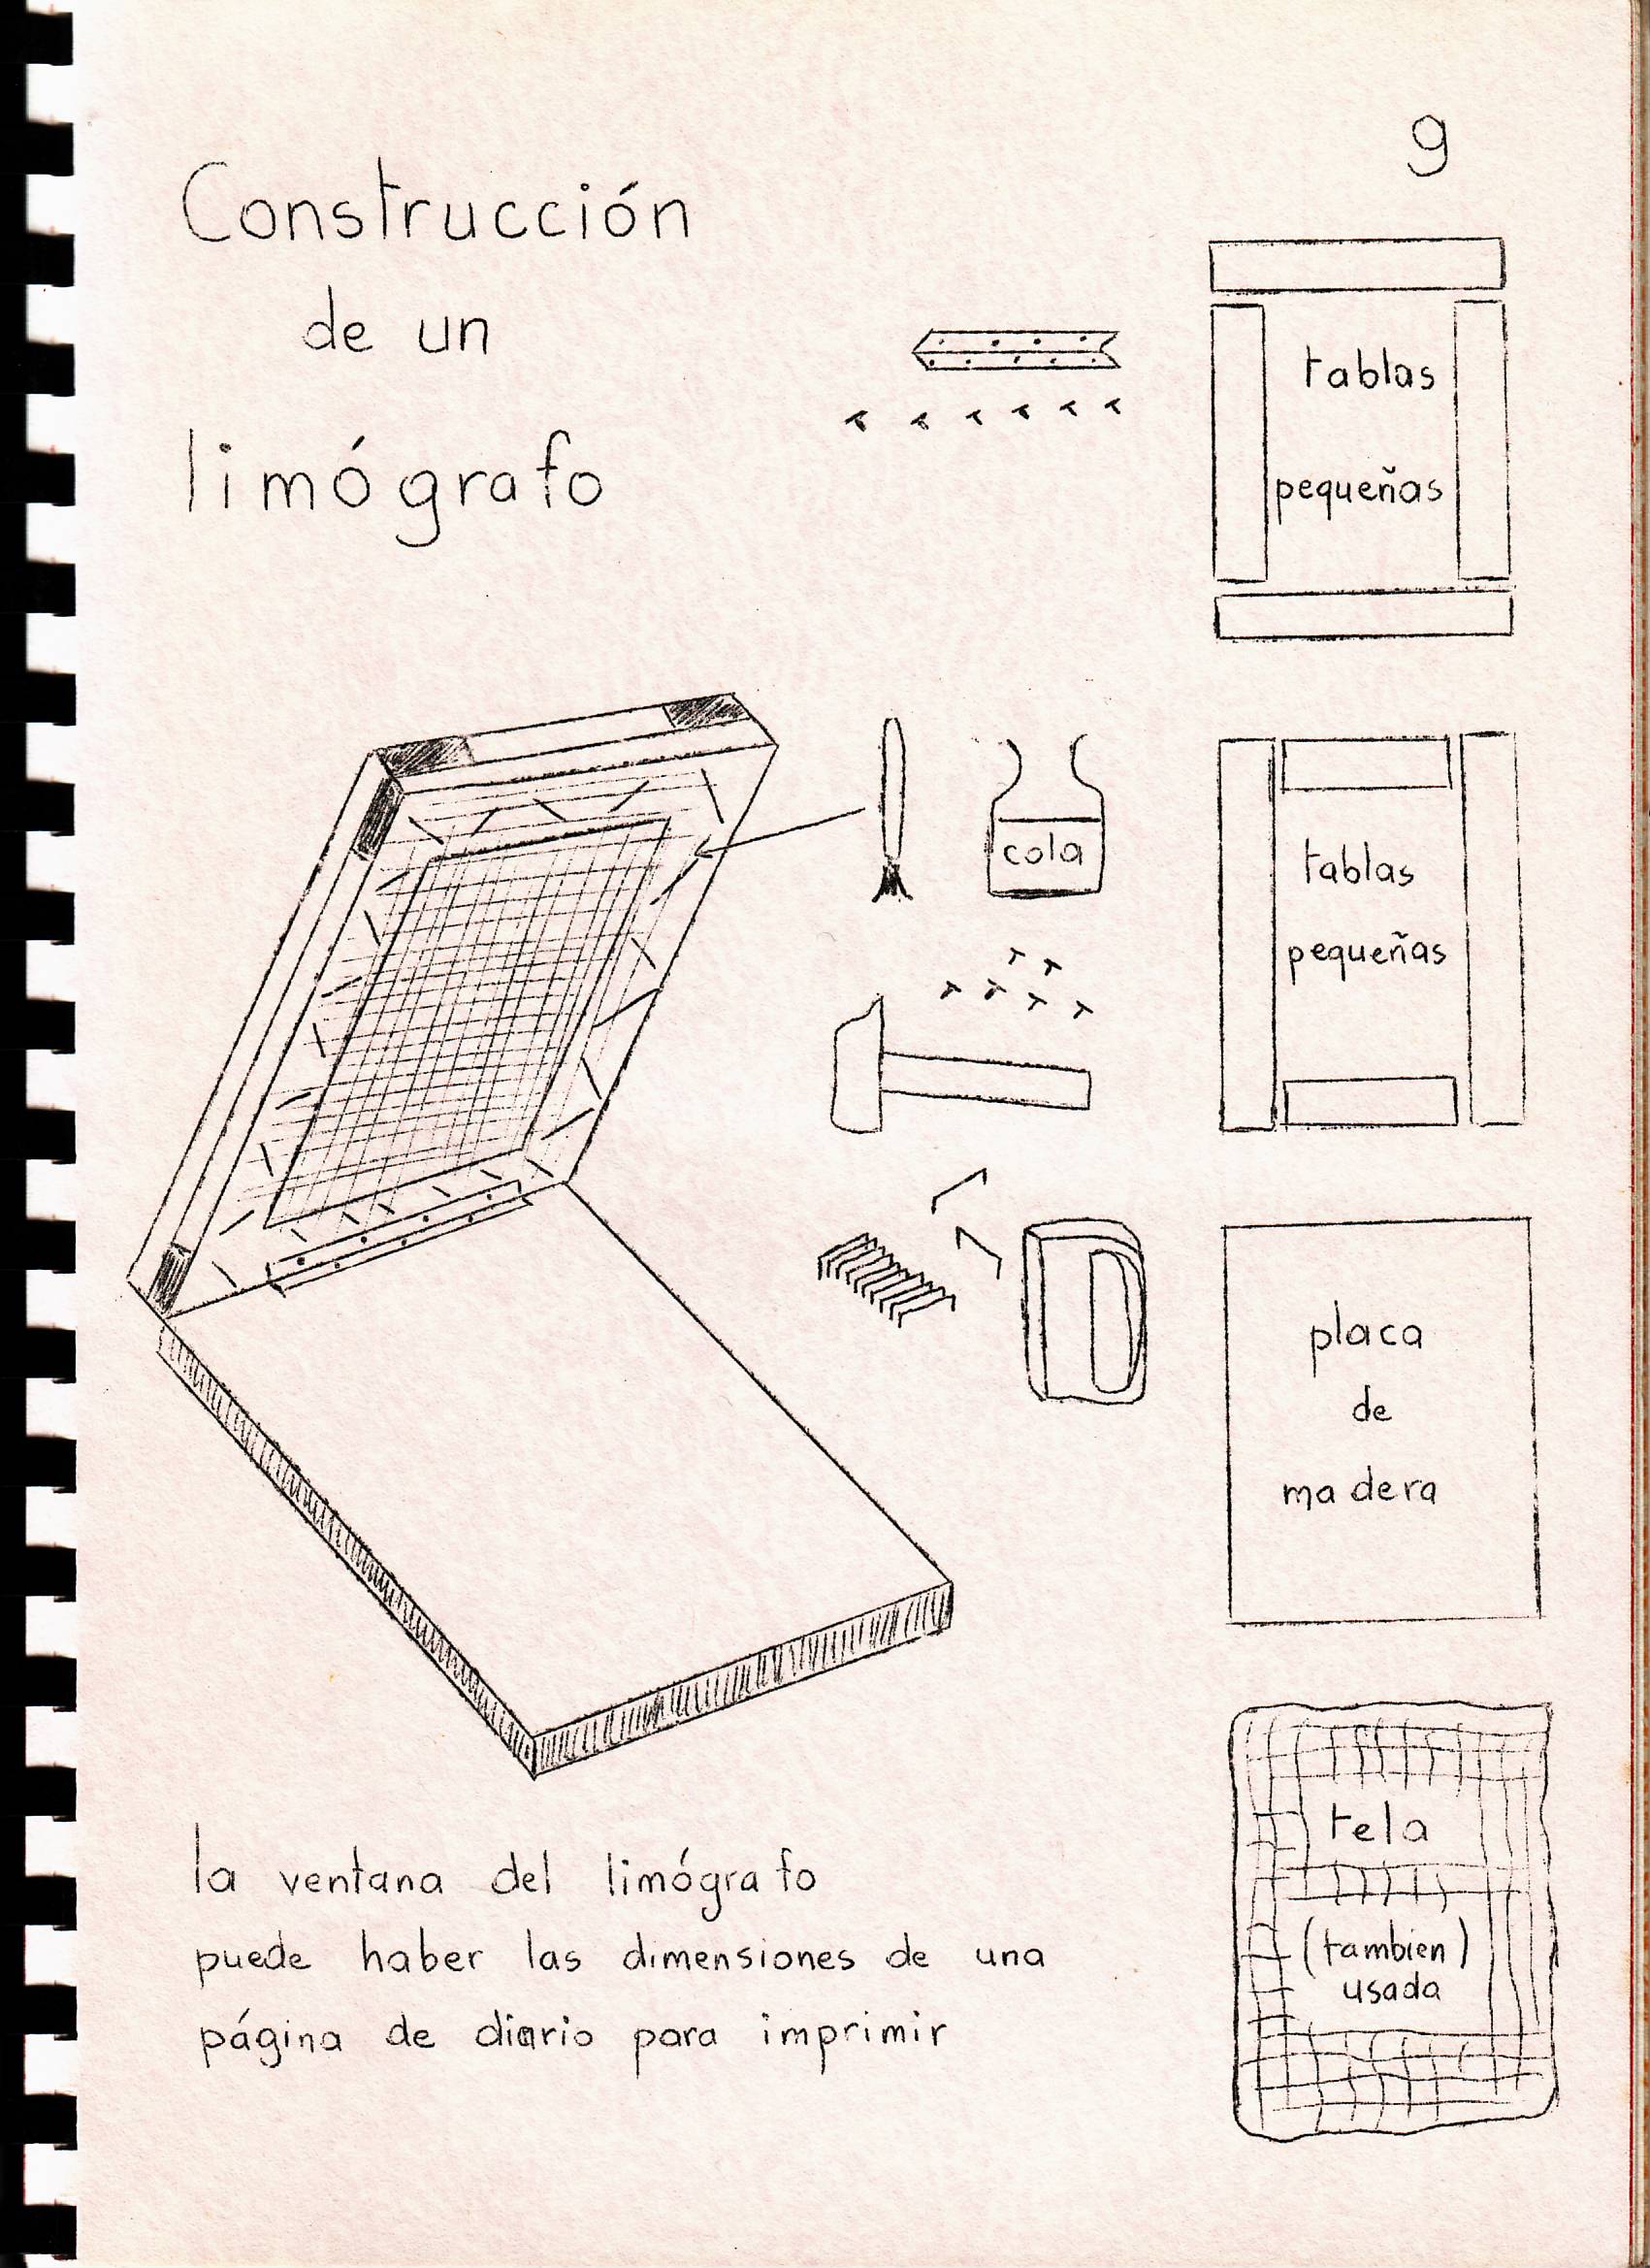 9
Construcción
de un
limógrafo
tablas
pequeñas
cola
tablas
pequeñas
placa
de
madera
tela
(tambien)
usada
la ventana del limógrafo
puede haber las dimensiones de una
página de diario para imprimir